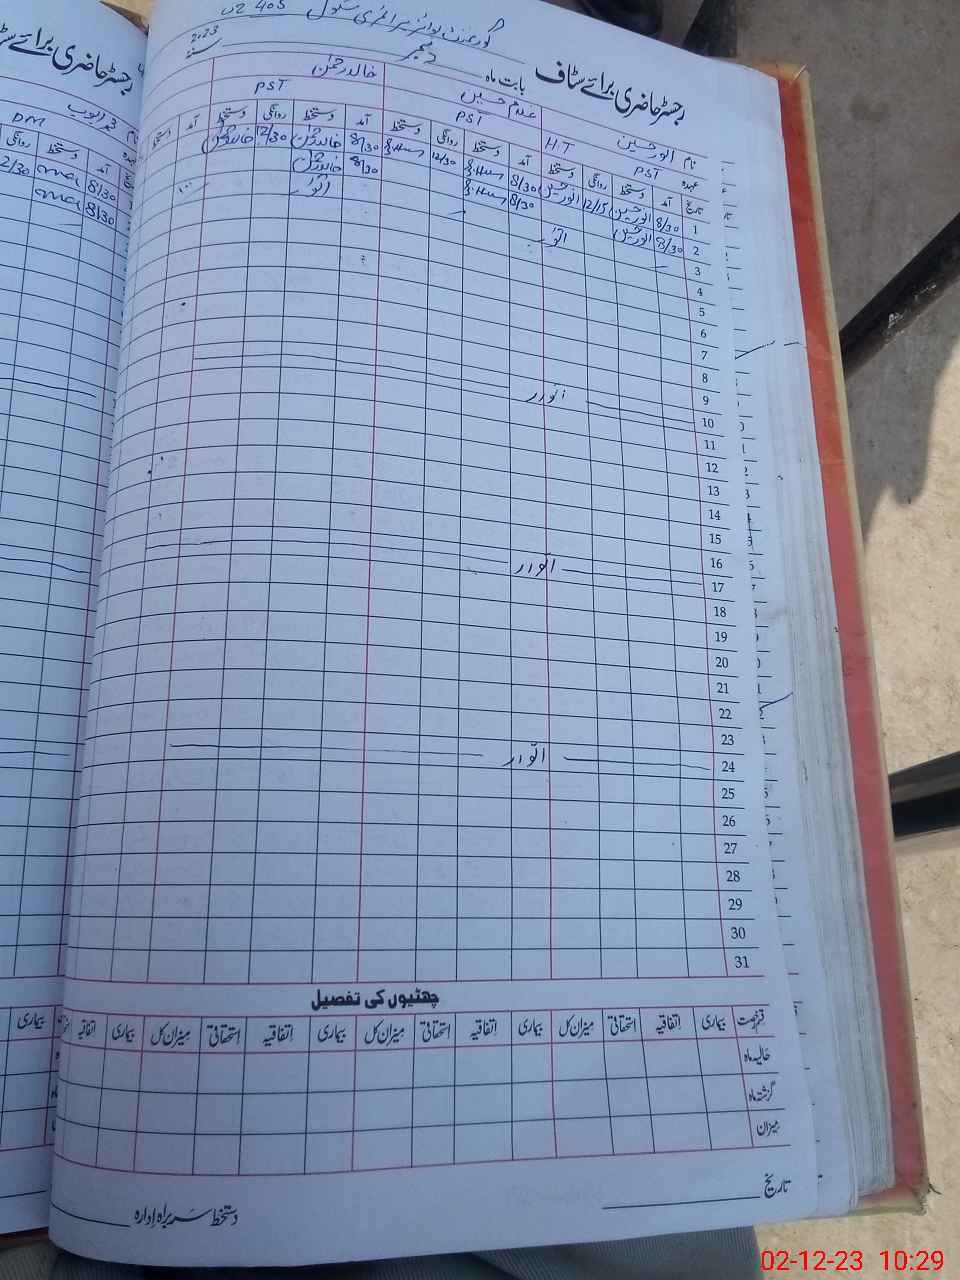 گورنمنٹ بوائز پرائمری سکول
رجسٹر حاضری برائے سٹاف
بابت ماہ دسمبر سنہ 2023
نام انور حسین غلام حسین خالد رحمٰن
عہدہ PST HT PST PST
تاریخ آمد دستخط روانگی دستخط آمد دستخط روانگی دستخط آمد دستخط روانگی دستخط آمد دستخط
1 8/30 انور حسین 12/15 انور حسین 8/30 12/30 8/30 خالد رحمٰن 12/30 خالد رحمٰن
2 8/30 انور حسین 8/30 8/30 خالد رحمٰن
3 اتوار اتوار
4
5
6
7
8
9
10 اتوار
11
12
13
14
15
16
17 اتوار
18
19
20
21
22
23
24 اتوار
25
26
27
28
29
30
31
چھٹیوں کی تفصیل
قسم رخصت بیماری اتفاقیہ استحقاقی میزان کل بیماری اتفاقیہ استحقاقی میزان کل بیماری اتفاقیہ استحقاقی میزان کل بیماری اتفاقیہ
حالیہ ماہ
گزشتہ ماہ
میزان
تاریخ
دستخط سربراہ ادارہ
رجسٹر حاضری برائے سٹاف
DM
آمد دستخط روانگی
8/30 12/30
8/30
بیماری
02-12-23 10:29